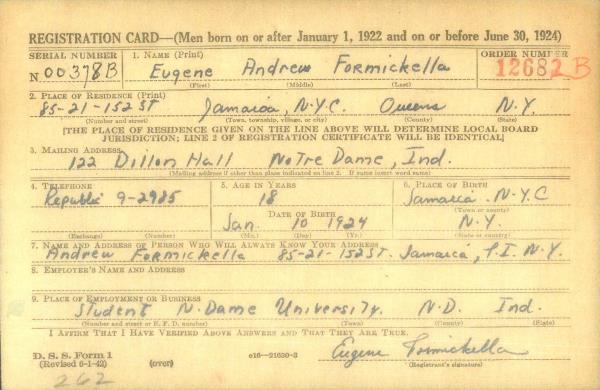 REGISTRATION CARD—(Men born on or after January 1, 1922 and on or before June 30, 1924)
SERIAL NUMBER 1. NAME (Print) ORDER NUMBER
N. 00378B Eugene Andrew Formickella 12682 B
(First) (Middle) (Last)
2. PLACE OF RESIDENCE (Print)
85-21-152 ST Jamaica, N.Y.C. Queens N.Y.
(Number and street) (Town, township, village, or city) (County) (State)
[THE PLACE OF RESIDENCE GIVEN ON THE LINE ABOVE WILL DETERMINE LOCAL BOARD
JURISDICTION; LINE 2 OF REGISTRATION CERTIFICATE WILL BE IDENTICAL]
3. MAILING ADDRESS
122 Dillon Hall Notre Dame, Ind.
(Mailing address if other than place indicated on line 2. If same insert word same)
4. TELEPHONE 5. AGE IN YEARS 6. PLACE OF BIRTH
Republic 9-2985 18 Jamaica N.Y.C
DATE OF BIRTH (Town or county)
Jan. 10 1924 N.Y.
(Exchange) (Number) (Mo.) (Day) (Yr.) (State or country)
7. NAME AND ADDRESS OF PERSON WHO WILL ALWAYS KNOW YOUR ADDRESS
Andrew Formickella 85-21-152 ST. Jamaica, L.I. N.Y.
8. EMPLOYER'S NAME AND ADDRESS
9. PLACE OF EMPLOYMENT OR BUSINESS
Student N. Dame University. N.D. Ind.
(Number and street or R. F. D. number) (Town) (County) (State)
I AFFIRM THAT I HAVE VERIFIED ABOVE ANSWERS AND THAT THEY ARE TRUE.
D. S. S. Form 1 Eugene Formickella
(Revised 6-1-42) (over) c16—21630-2 (Registrant's signature)
262